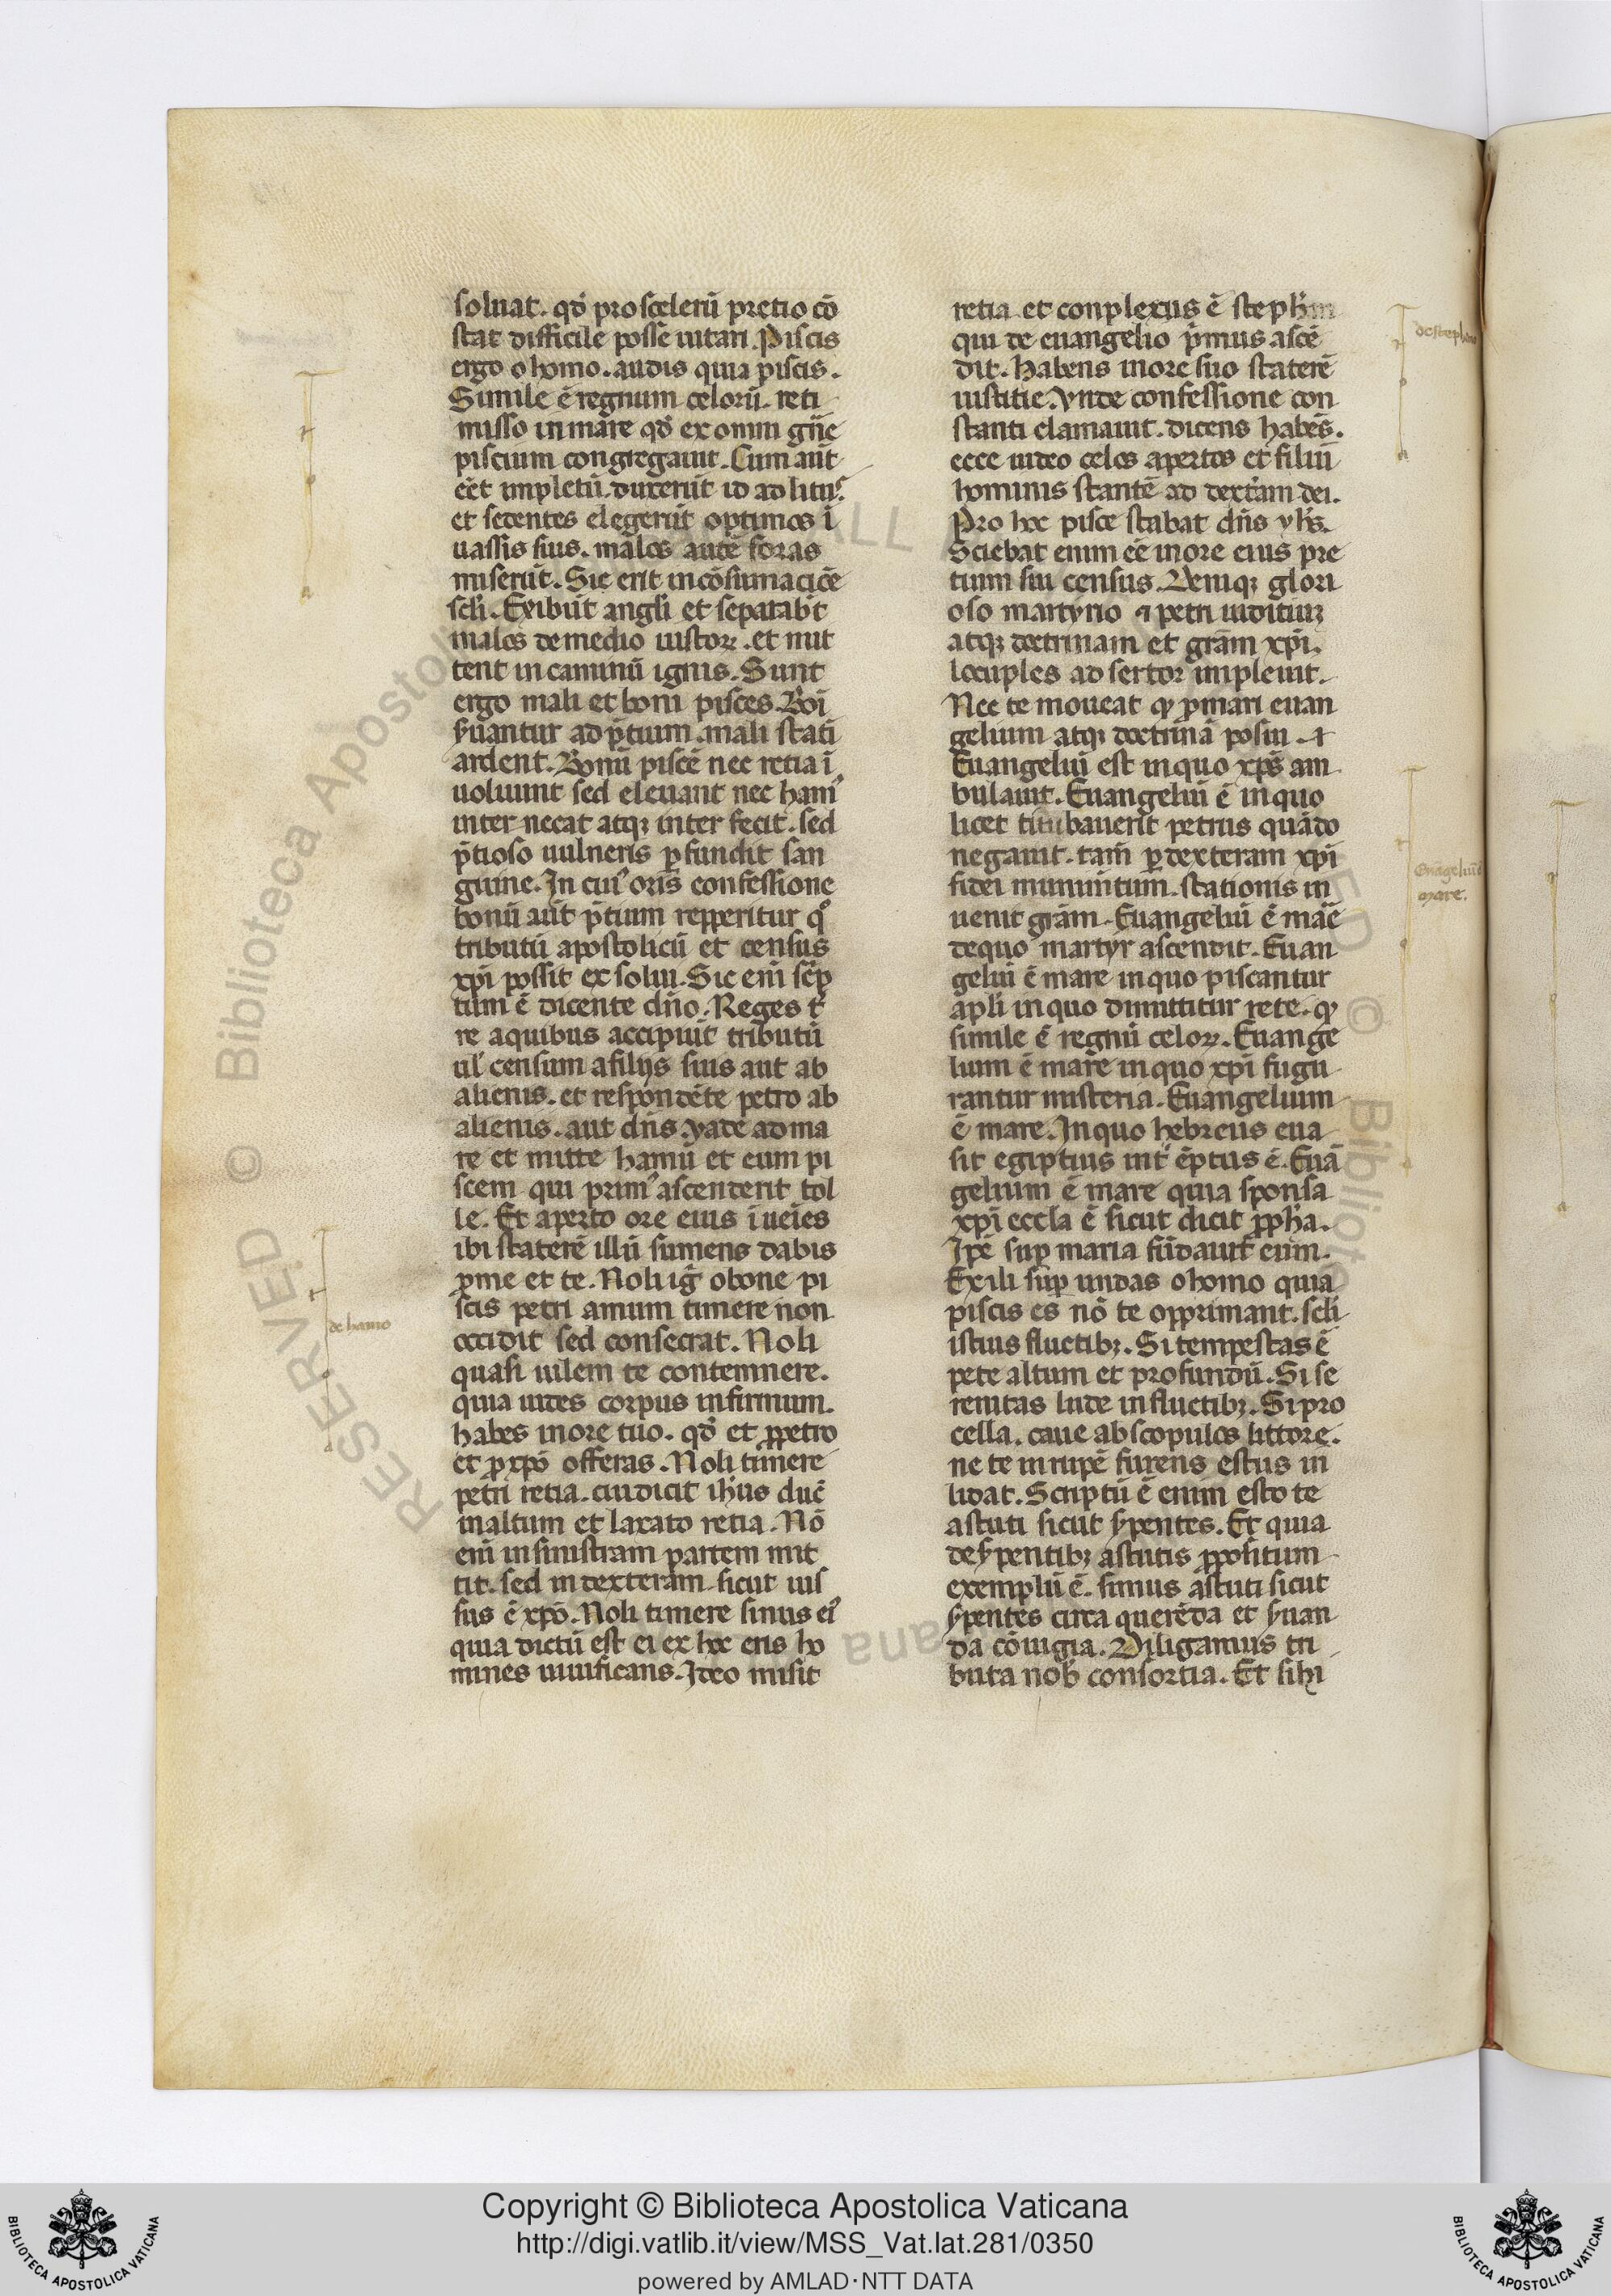 soluat. qđ pro scelerū pretio cō
stat difficile posse uitari. Piscis
ergo o homo. audis quia piscis.
Simile ē regnum celorū. reti
misso in mare qđ ex omni gn̄e
piscium congregauit. Cum aūt
eēt impletū. duxerūt id ad litus.
et sedentes elegerūt optimos ī
uassis suis. malos autē foras
miserūt. Sic erit in cōsumaciōe
scl̄i. Exibūt angl̄i et separabt̄
malos de medio iustoꝝ. et mit
tent in caminū ignis. Sunt
ergo mali et boni pisces. Boī
s̄uantur ad p̄tium. mali statī
ardent. Bonū piscē nec retia ī
uoluunt sed eleuant nec ham᾽
inter necat atqꝫ inter fecit. sed
p̄tioso uulneris ꝑfundit san
guine. In cui᾽ oris confessione
bonū aūt p̄tium repperitur qͦ
tributū apostolicū et census
xp̄i possit ex solui. Sic enī sc̄p
tum ē dicente dn̄o. Reges t̄
re a quibus accipiūt tributū
ul̄ censum a filijs suis aut ab
alienis. et respondēte petro ab
alienis. aut dn̄s. vade ad ma
re et mitte hamū et eum pi
scem qui prim᾽ ascenderit tol
le. Et aperto ore eius īueīes
ibi staterē illū sumens dabis
ꝓ me et te. Noli iḡ o bone pi
scis petri amum timere non
occidit sed consecrat. Noli
quasi uilem te contemnere.
quia uides corpus infirmum.
habes in ore tuo. qđ et ꝓ petro
et ꝓ xp̄o offeras. Noli timere
petri retia. cui dicit ih̄us duc̄
in altum et laxato retia. Nō
enī in sinistram partem mit
tit. sed in dexteram sicut ius
sus ē xp̄o. Noli timere sinus ei᾽
quia dictū est ei ex hoc eris ho
mines uiuificans. Ideo misit
retia et conplexus ē steph̄m
qui de euangelio p̄mus ascē
dit. Habens in ore suo staterē
iustitie. vnde confessione con
stanti clamauit. dicens habēs.
ecce uideo celos apertos et filiū
hominis stantē ad dextram dei.
Pro hoc pisce stabat dn̄s yh̄s.
Sciebat enim eē in ore eius pre
tium sui census. Deniqꝫ glori
oso martyrio ⁊ petri iuditiuꝫ
atqꝫ doctrinam et grām xp̄i.
locuples ad sertor impleuit.
Nec te moueat ꝙ ꝓ mari euan
gelium atqꝫ doctrinā posui. ⁊
Euangeliū est in quo xp̄s am
bulauit. Euangeliū ē in quo
licet titubauerit petrus quādo
negauit. tam̄ ꝑ dexteram xp̄i
fidei munim̄tum. stationis in
uenit grām. Euangeliū ē mar̄e
de quo martyr ascendit. Euan
geliū ē mare in quo piscantur
apl̄i in quo dimittitur rete. ꝙ
simile ē regnū celoꝝ. Euange
lium ē mare in quo xp̄i fugu
rantur misteria. Euangelium
ē mare. In quo hebreus eua
sit egiptius int̄ ēptus ē. Euā
gelium ē mare quia sponsa
xp̄i eccla ē sicut dicit ꝓph̄a.
Ipē suꝑ maria fūdauit eum.
Exili suꝑ undas o homo quia
piscis es nō te opprimant. scl̄i
istius fluctibꝫ. Si tempestas ē
pete altum et profundū. Si se
renitas lude in fluctibꝫ. Si pro
cella. caue ab scopulos littore.
ne te in rupē furens estus in
lidat. Scriptū ē enim estote
astuti sicut s̄pentes. Et quia
de s̄pentibꝫ astutis ꝓpositum
exemplū ē. simus astuti sicut
s̄pentes circa querēda et s̄uan
da cōiugia. Diligamus tri
buta nob̄ consortia. Et si hi
de stephano
Euāgeliū ē
mare.
de hamo
RESERVED © Biblioteca Apostolica
Copyright © Biblioteca Apostolica Vaticana
http://digi.vatlib.it/view/MSS_Vat.lat.281/0350
powered by AMLAD·NTT DATA
BIBLIOTECA APOSTOLICA VATICANA
BIBLIOTECA APOSTOLICA VATICANA